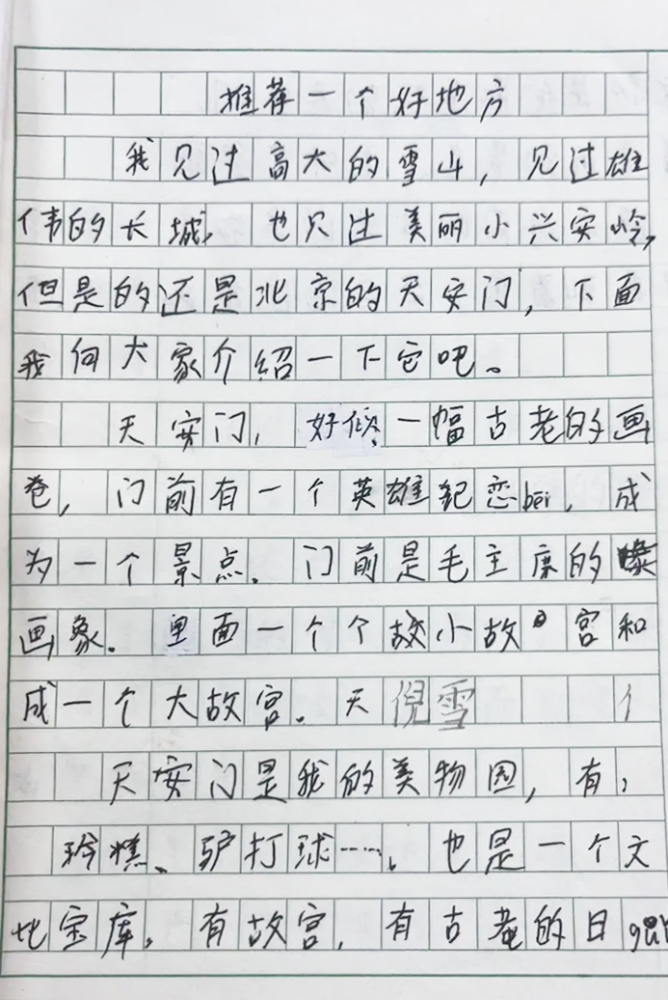 推荐一个好地方
我见过高大的雪山，见过雄
伟的长城，也只过美丽小兴安岭，
但是的还是北京的天安门，下面
我向大家介绍一下它吧。
天安门，好似一幅古老的画
卷，门前有一个英雄纪恋bēi，成
为一个景点。门前是毛主席的
画象。里面一个个故小故宫和
成一个大故宫。天倪雪
天安门是我的美物园，有，
糕、驴打球……，也是一个文
化宝库。有故宫，有古老的日guī